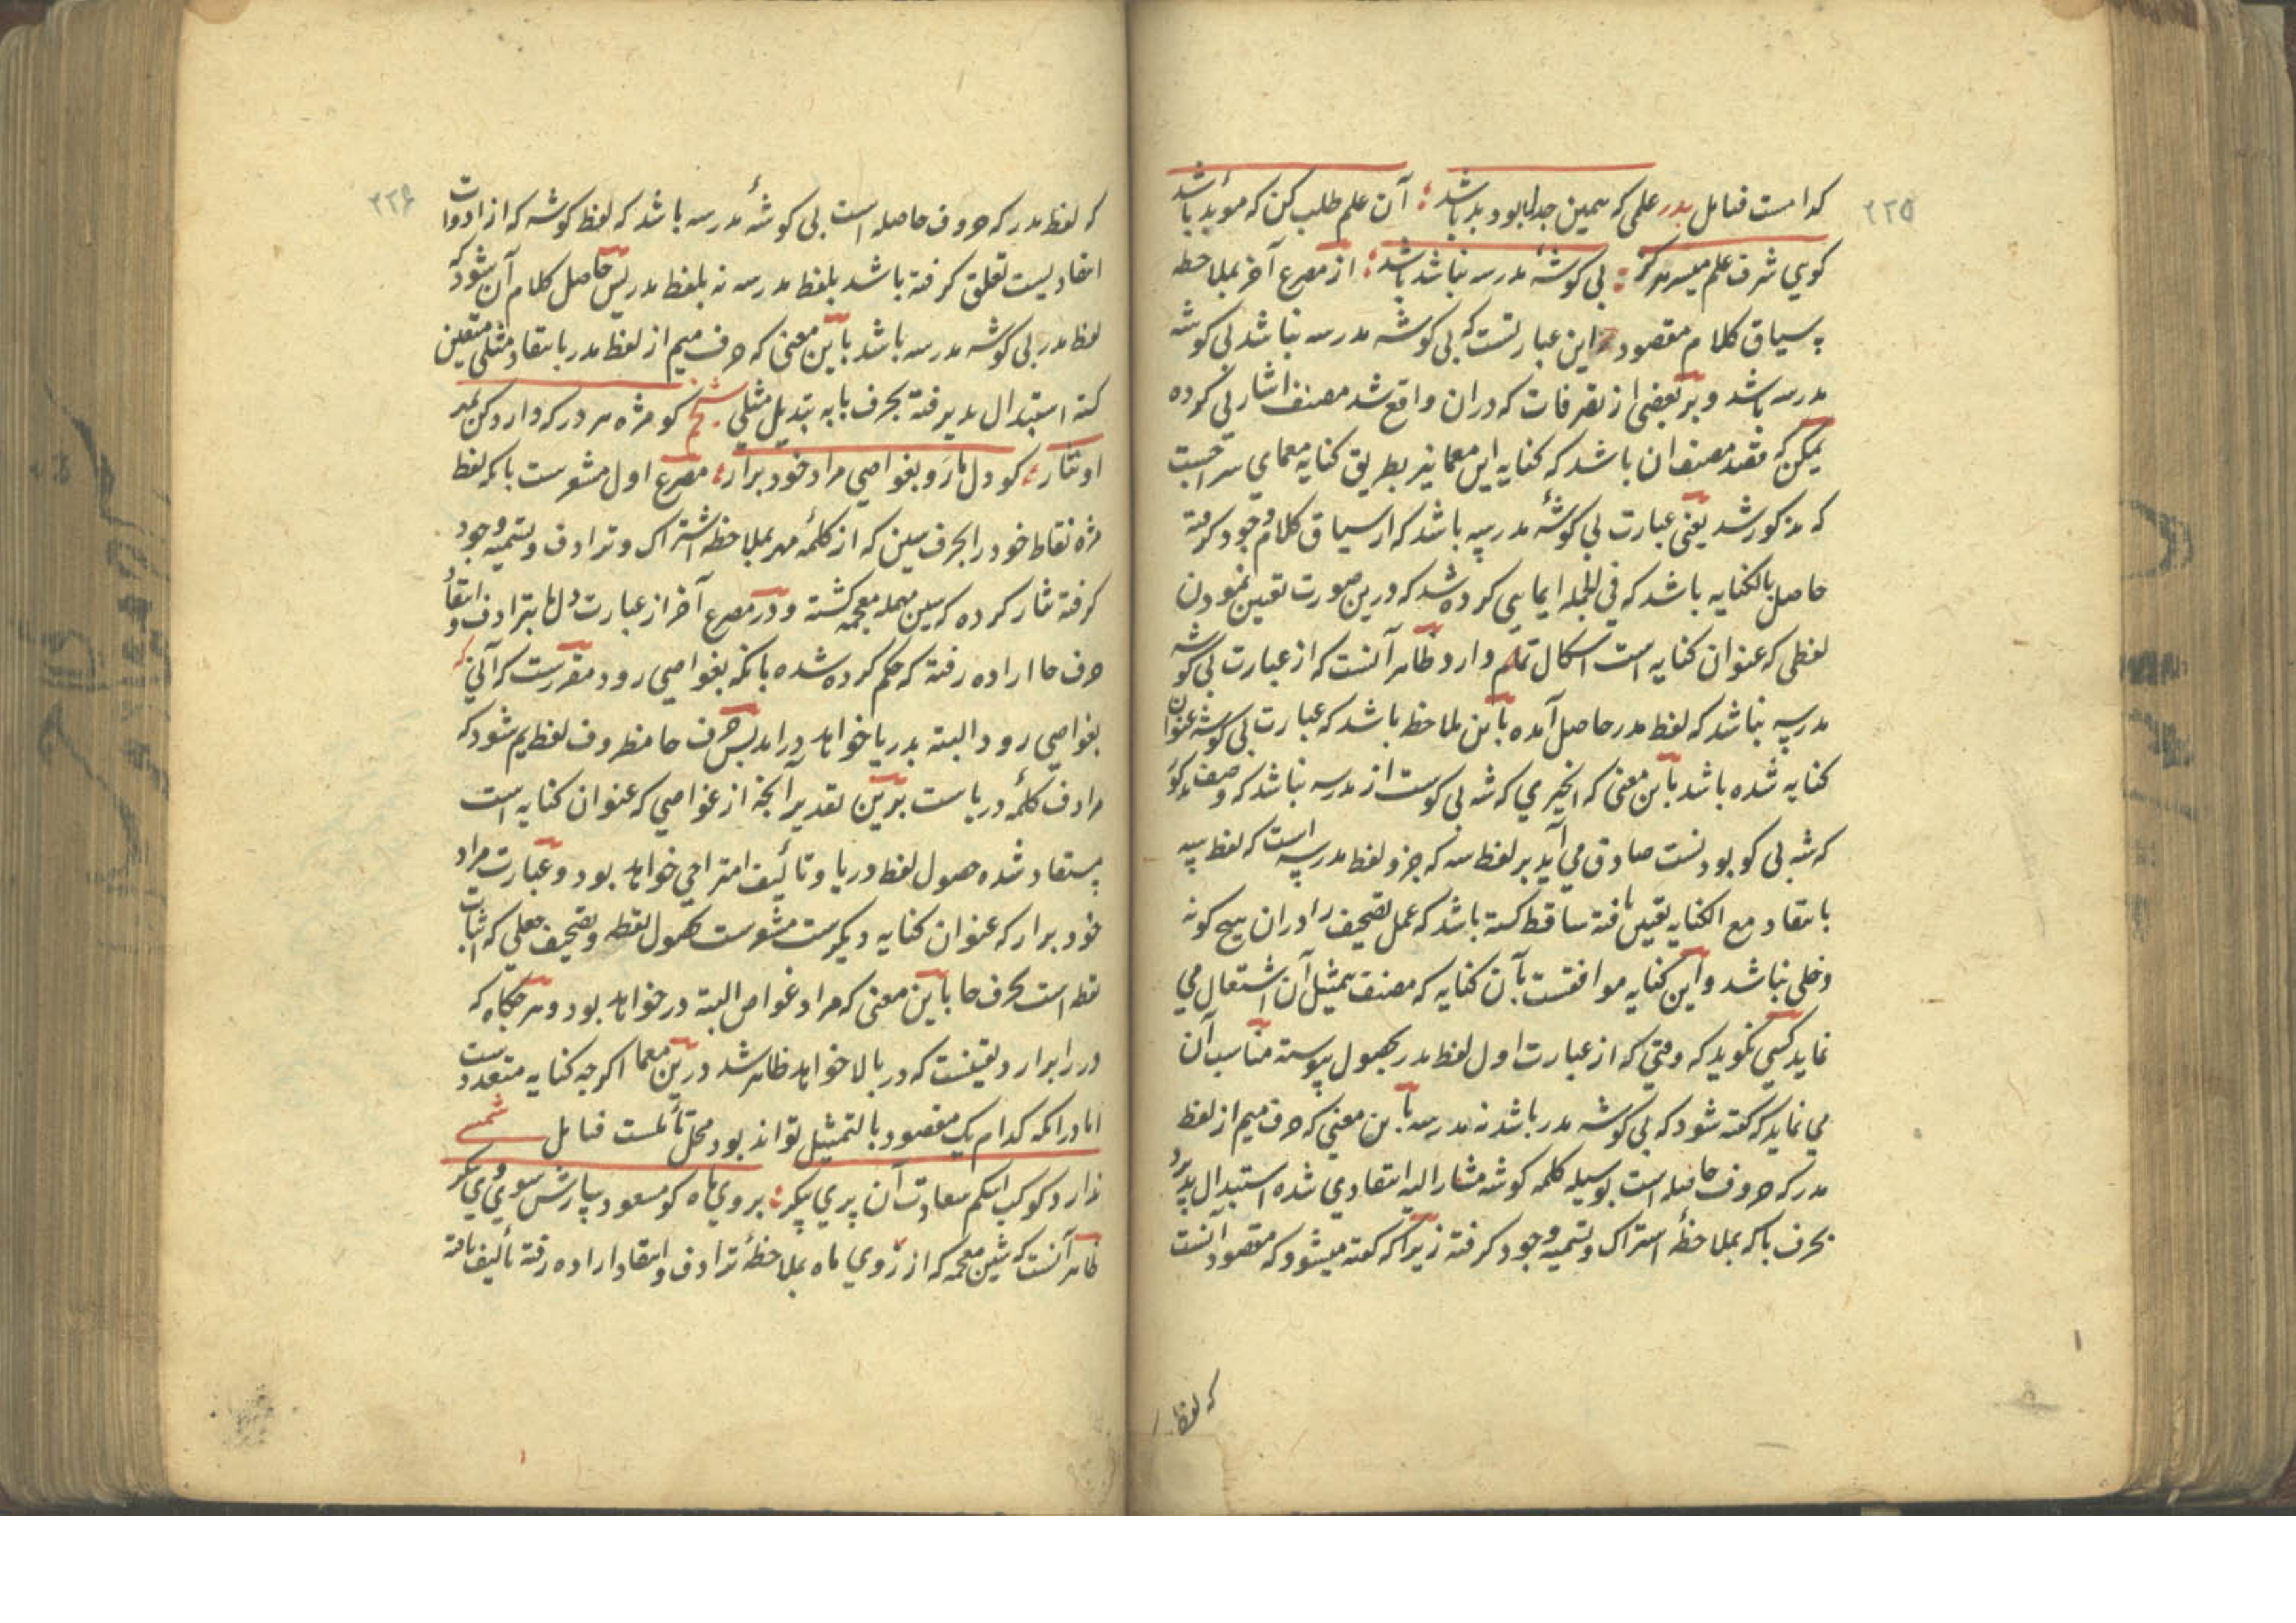 ۲۲۵
کدامست فتامل بدر علمی که همین جدل بود بد باشد آن علم طلب کن که مؤید باشد
کویی شرف علم میسر مدرکر بی کوشهٔ مدرسه نباشد باشد از مصرع آخر بملاحظه
سیاق کلام مقصود این عبارتست که بی کوشه مدرسه نباشد بی کوشه
مدرسه باشد و بر بعضی از تصرفات که دران واقع شد مصنف اشارتی کرده
یمکن که مقصد مصنف ان باشد که کنایه این معما نیز بطریق کنایه معمای
که مذکور شد یعنی عبارت بی کوشهٔ مدرسه باشد که از سیاق کلام وجود کرفته
حاصل بالکنایه باشد که فی الجمله ایمایی کرده شد که درین صورت تعیین نمودن
لفظی که عنوان کنایه است اشکال تمام دارد ظاهر آنست که از عبارت بی کوشه
مدرسه نباشد که لفظ مدر حاصل آمده باین ملاحظه باشد که عبارت بی کوشه عنوان
کنایه شده باشد باین معنی که انچیزی که شه بی کوست از مدرسه نباشد که وصف مذکور
که شه بی کو بودنست صادق می آید بر لفظ سه که جزو لفظ مدرسه است که لفظ سه
بانتقاد مع الکنایه تعیین یافته ساقط کشته باشد که عمل تصحیف را دران هیچ کونه
دخلی نباشد و این کنایه موافقست بآن کنایه که مصنف بمثیل آن اشتغال می
نماید کسی نکوید که وقتی که از عبارت اول لفظ مدر بحصول پیوسته مناسب آن
می نماید که کفته شود که بی کوشه مدر باشد نه مدرسه باین معنی که حرف میم از لفظ
مدر که حروف حاصله است بوسیله کلمه کوشه مشار الیه انتقادی شده استبدال پذیرد
بحرف با که بملاحظهٔ اشتراک و تسمیه وجود کرفته زیرا که کفته میشود که مقصود آنست
که لفظ
۲۲۶
که لفظ مدر که حروف حاصله است بی کوشهٔ مدرسه باشد که لفظ کوشه که از ادوات
انتقادیست تعلق کرفته باشد بلفظ مدرسه نه بلفظ مدر پس حاصل کلام آن شود که
لفظ مدر بی کوشه مدرسه باشد باین معنی که حرف میم از لفظ مدر بانتقاد مثلی متعین
کشته استبدال پذیرفته بحرف با به تبدیل مثلی شیخم کو مژه مهر در که دارد کن بمد
او نثار کو دل مارو بغواصی مراد خود برار مصرع اول مشعرست بآنکه لفظ
مژه نقاط خود را بحرف سین که از کلمهٔ مهر بملاحظه اشتراک و ترادف و تسمیه وجود
کرفته نثار کرده که سین مهمله معجمه کشته و در مصرع آخر از عبارت دل ما بترادف و انتقاد
حرف حا اراده رفته که حکم کرده شده بآنکه بغواصی رود مقررست که آنی که
بغواصی رود البته بدریا خواهد درامد پس حرف حا مظروف لفظ یم شود که
مرادف کلمهٔ دریاست برین تقدیر آنچه از غواصی که عنوان کنایه است
مستفاد شده حصول لفظ دریا و تألیف امتزاجی خواهد بود و عبارت مراد
خود برار که عنوان کنایه دیکرست مشعرست بحصول نقطه و تصحیف جعلی که اثبات
نقطه است بحرف حا باین معنی که مراد غواص البته در خواهد بود و هرجکاه که
در را برارد یقینست که در بالا خواهد ظاهر شد درین معما اکرچه کنایه متعددست
اما در آنکه کدام یک مقصود بالتمثیل تواند بود محل تأملست فتامل شمسی
ندارد کوکب انکم سعادت آن پری پیکر بروی ماه کو مسعود پارش سوی وی بنکر
ظاهر آنست که شین معجمه که از روی ماه بملاحظهٔ ترادف و انتقاد اراده رفته تألیف یافته